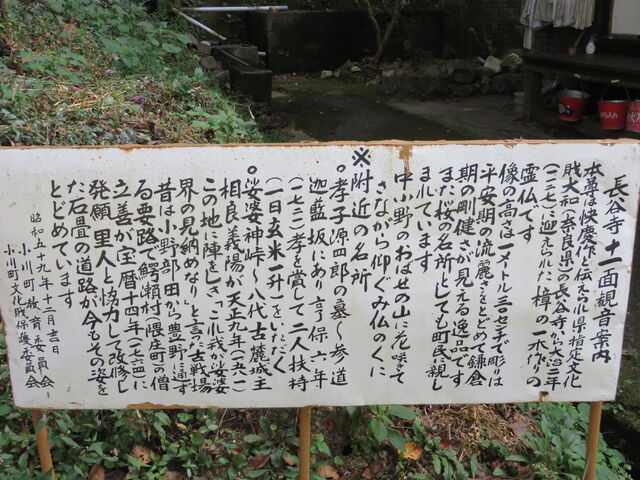 長谷寺十一面観音案内
本尊は快慶作と伝えられ県指定文化
財大和(奈良県)の長谷寺から大治二年
(一一二七)に迎えられた樟の一木作りの
霊仏です
像の高さは一メートル三〇センチで彫りは
平安期の流麗さをとどめて鎌倉
期の剛健さが見える逸品です
また桜の名所としても町民に親し
まれています
中小野のおはせの山に花咲きて
さながら仰ぐみ仏のくに
※附近の名所
○孝子源四郎の墓〜参道
迦藍坂にあり享保六年
(一七二一)孝を賞して二人扶持
(一日玄米一升)をいただく
○娑婆神峠〜八代古麓城主
相良義陽が天正九年(一五八一)
この地に陣をしき「これが娑婆
界の見納めなり」と言った古戦場
昔は小野部田から豊野に通ず
る要路で鯰瀬村隈庄町の僧
立善が宝暦十四年(一七六四)に
発願里人と協力して改修し
た石畳の道路が今もその姿を
とどめています
昭和五十九年十二月吉日
小川町教育委員会
小川町文化財保護委員会
から入れ
火